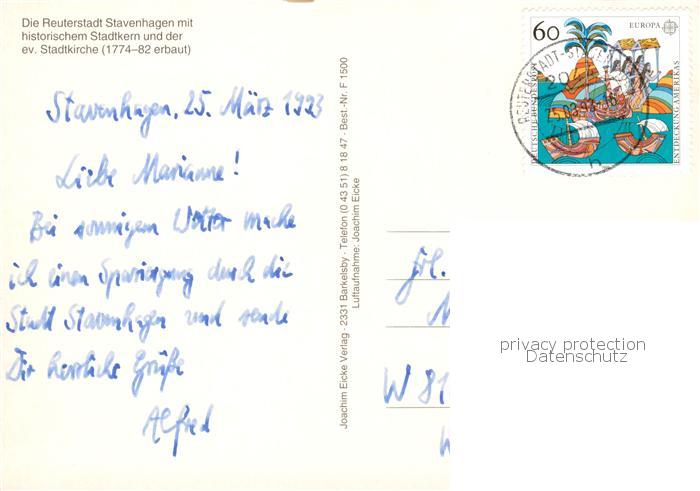 Die Reuterstadt Stavenhagen mit
historischem Stadtkern und der
ev. Stadtkirche (1774–82 erbaut)
Stavenhagen, 25. März 1993
Liebe Marianne!
Bei sonnigem Wetter mache
ich einen Spaziergang durch die
Stadt Stavenhagen und sende
Dir herzliche Grüße
Alfred
Joachim Eicke Verlag · 2331 Barkelsby · Telefon (0 43 51) 8 18 47 · Best.-Nr. F 1500
Luftaufnahme: Joachim Eicke
60
EUROPA
DEUTSCHE BUNDESPOST
ENTDECKUNG AMERIKAS
REUTERSTADT-STAVENHAGEN
h
Frl.
W 81
privacy protection
Datenschutz